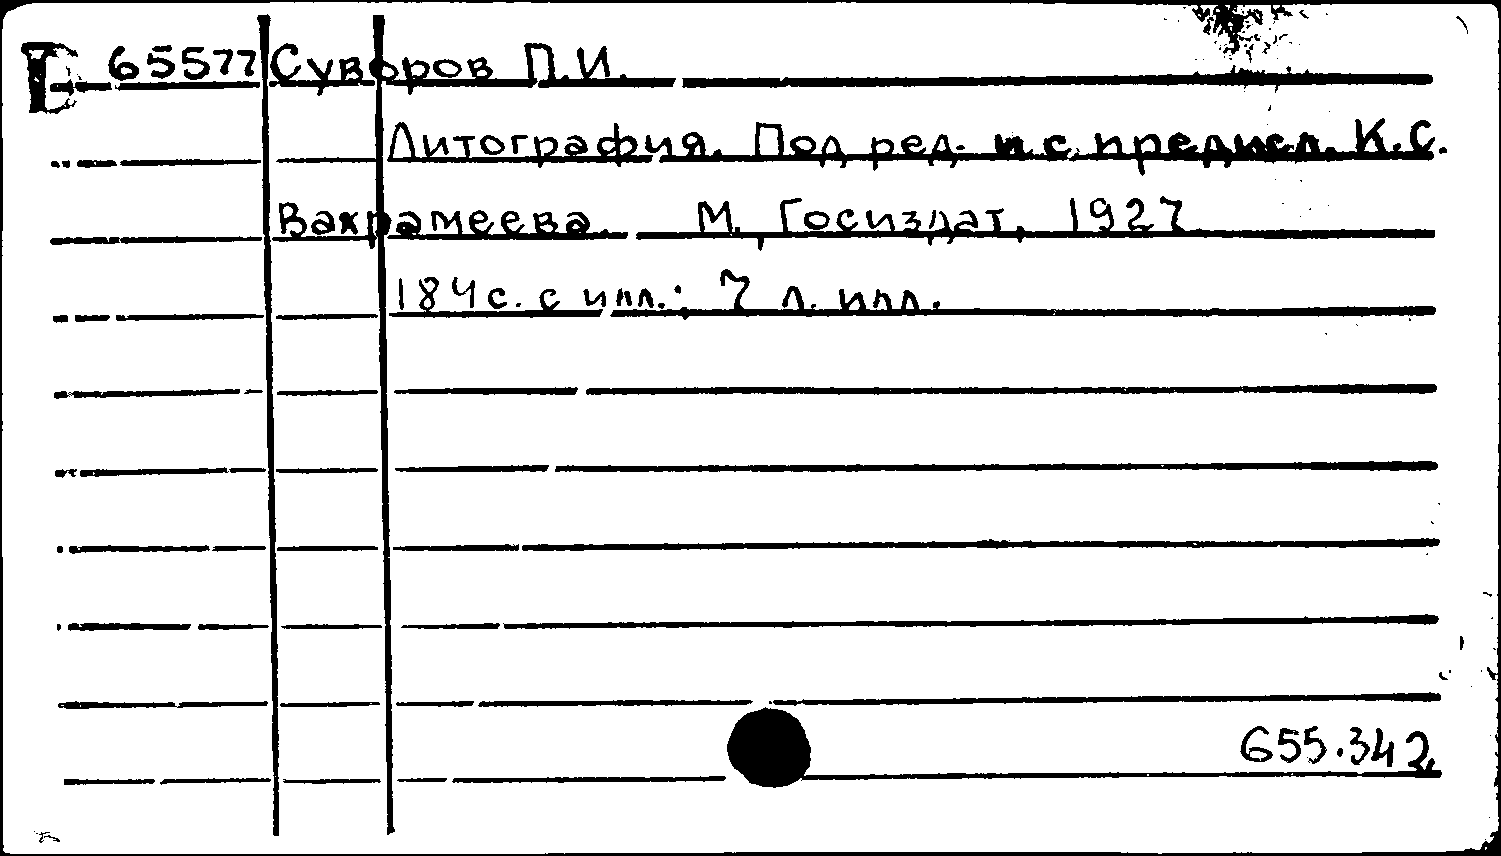 65577 Суворов П.И.
Литография. Под ред. и с предисл. К.С.
Вахрамеева. М., Госиздат, 1927
184 с. с илл.; 7 л. илл.
655.342.